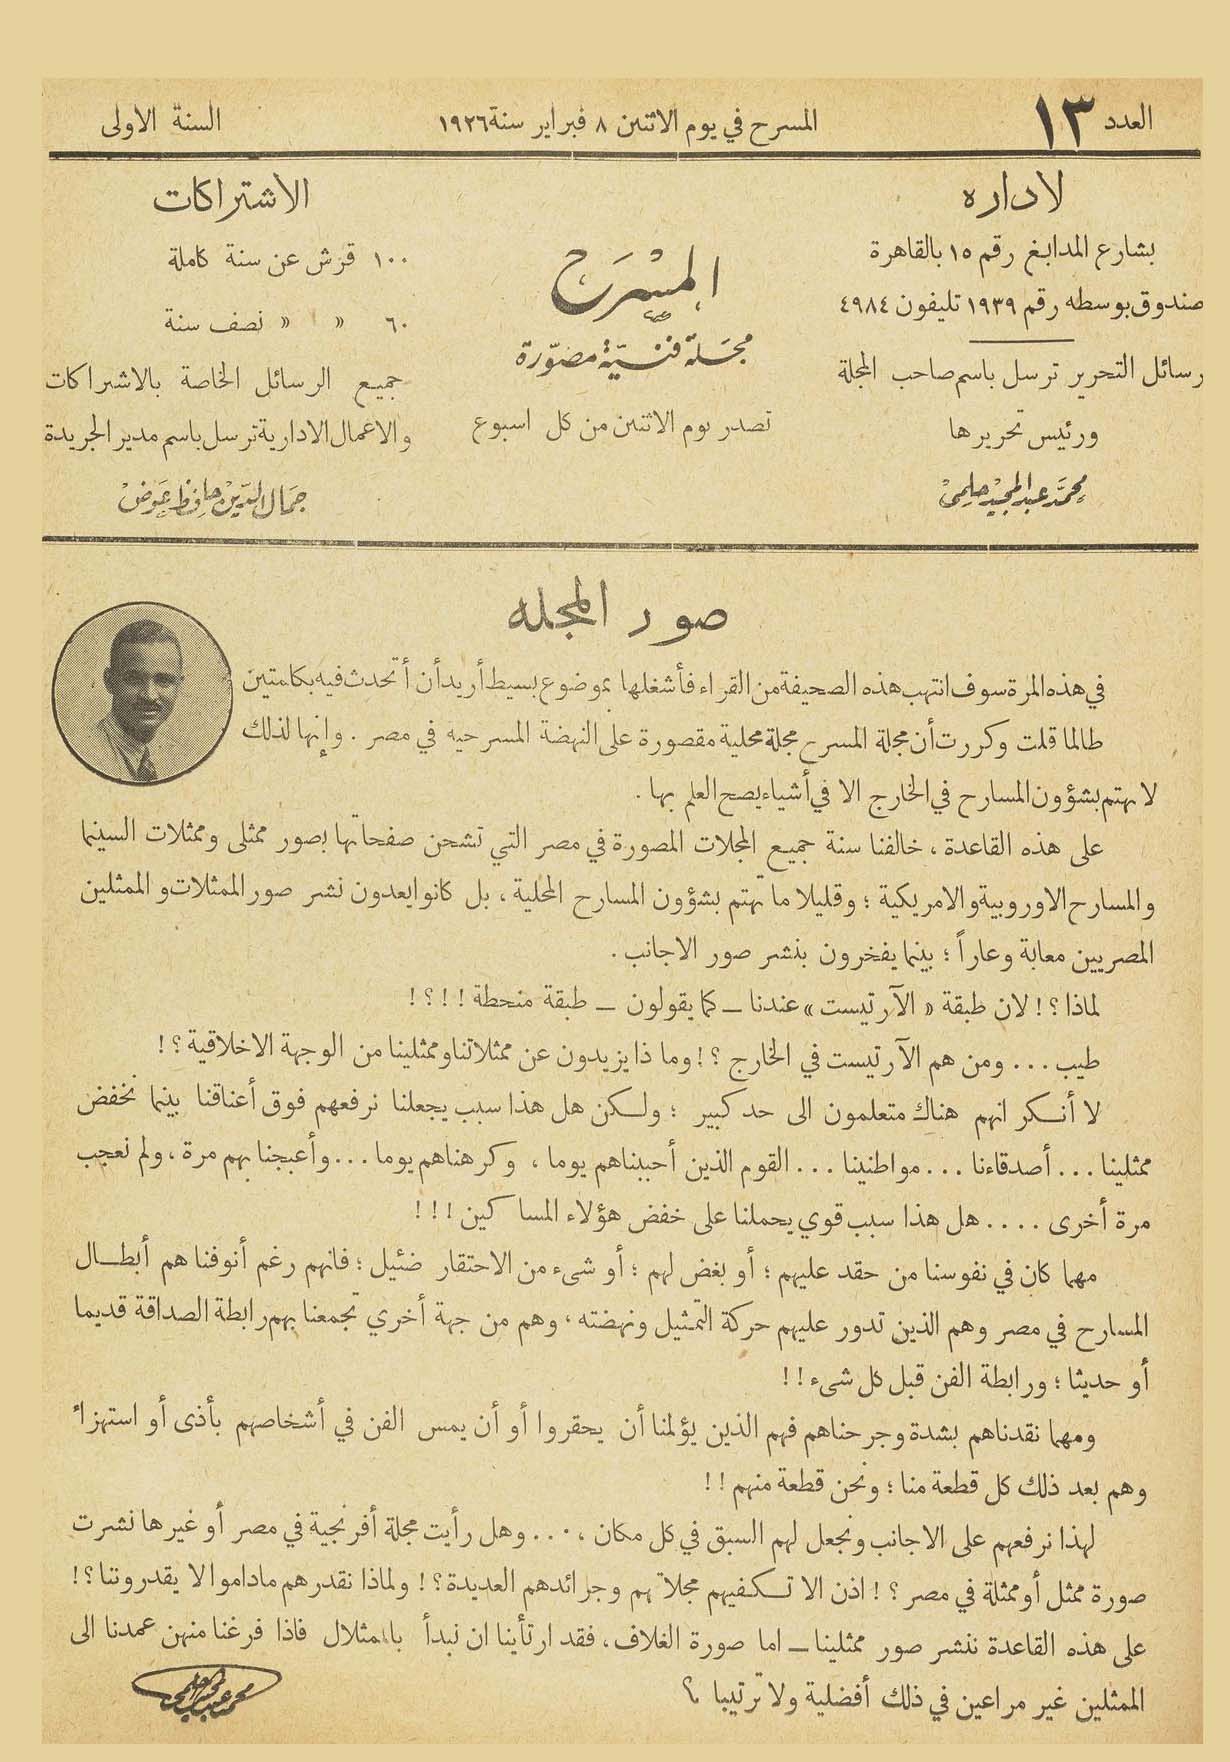 العدد ١٣
المسرح في يوم الاثنين ٨ فبراير سنة ١٩٢٦
السنة الاولى
لاداره
بشارع المدابغ رقم ١٥ بالقاهرة
صندوق بوسطه رقم ١٩٣٩ تليفون ٤٩٨٤
رسائل التحرير ترسل باسم صاحب المجلة
ورئيس تحريرها
محمد عبد المجيد حلمى
المسرح
مجلة فنية مصورة
تصدر يوم الاثنين من كل اسبوع
الاشتراكات
١٠٠ قرش عن سنة كاملة
٦٠ » » نصف سنة
جميع الرسائل الخاصة بالاشتراكات
والاعمال الادارية ترسل باسم مدير الجريدة
جمال الدين حافظ عوض
صور المجله
في هذه المرة سوف انتهب هذه الصحيفة من القراء فأشغلها بموضوع بسيط أريد أن أتحدث فيه بكلمتين
طالما قلت وكررت أن مجلة المسرح مجلة محلية مقصورة على النهضة المسرحيه في مصر . وإنها لذلك
لا تهتم بشؤون المسارح في الخارج الا في أشياء يصح العلم بها .
على هذه القاعدة ، خالفنا سنة جميع المجلات المصورة في مصر التي تشحن صفحاتها بصور ممثلى وممثلات السينما
والمسارح الاوروبية والامريكية ؛ وقليلا ما تهتم بشؤون المسارح المحلية ، بل كانوا يعدون نشر صور الممثلات والممثلين
المصريين معابة وعاراً ؛ بينما يفخرون بنشر صور الاجانب .
لماذا ؟ ! لان طبقة « الآرتيست » عندنا ــ كما يقولون ــ طبقة منحطة ! ! ؟ !
طيب . . . ومن هم الآرتيست في الخارج ؟ ! وما ذا يزيدون عن ممثلاتنا وممثلينا من الوجهة الاخلاقية ؟ !
لا أنكر انهم هناك متعلمون الى حد كبير ؛ ولكن هل هذا سبب يجعلنا نرفعهم فوق أعناقنا بينما نخفض
ممثلينا . . . أصدقاءنا . . . مواطنينا . . . القوم الذين أحببناهم يوما ، وكرهناهم يوما . . . وأعجبنا بهم مرة ، ولم نعجب
مرة أخرى . . . . هل هذا سبب قوي يحملنا على خفض هؤلاء المساكين ! ! !
مهما كان في نفوسنا من حقد عليهم ؛ أو بغض لهم ؛ أو شىء من الاحتقار ضئيل ؛ فانهم رغم أنوفنا هم أبطال
المسارح في مصر وهم الذين تدور عليهم حركة التمثيل ونهضته ، وهم من جهة أخري تجمعنا بهم رابطة الصداقة قديما
أو حديثا ؛ ورابطة الفن قبل كل شىء ! !
ومهما نقدناهم بشدة وجرحناهم فهم الذين يؤلمنا أن يحقروا أو أن يمس الفن في أشخاصهم بأذى أو استهزاء
وهم بعد ذلك كل قطعة منا ؛ ونحن قطعة منهم ! !
لهذا نرفعهم على الاجانب ونجعل لهم السبق في كل مكان ، . . . وهل رأيت مجلة أفرنجية في مصر أو غيرها نشرت
صورة ممثل أو ممثلة في مصر ؟ ! اذن الا تكفيهم مجلاتهم وجرائدهم العديدة ؟ ! ولماذا نقدرهم ماداموا لا يقدروتنا ؟ !
على هذه القاعدة ننشر صور ممثلينا ــ اما صورة الغلاف ، فقد ارتأينا ان نبدأ بالمثلال فاذا فرغنا منهن عمدنا الى
الممثلين غير مراعين في ذلك أفضلية ولا ترتيبا ؟
محمد عبد المجيد حلمى